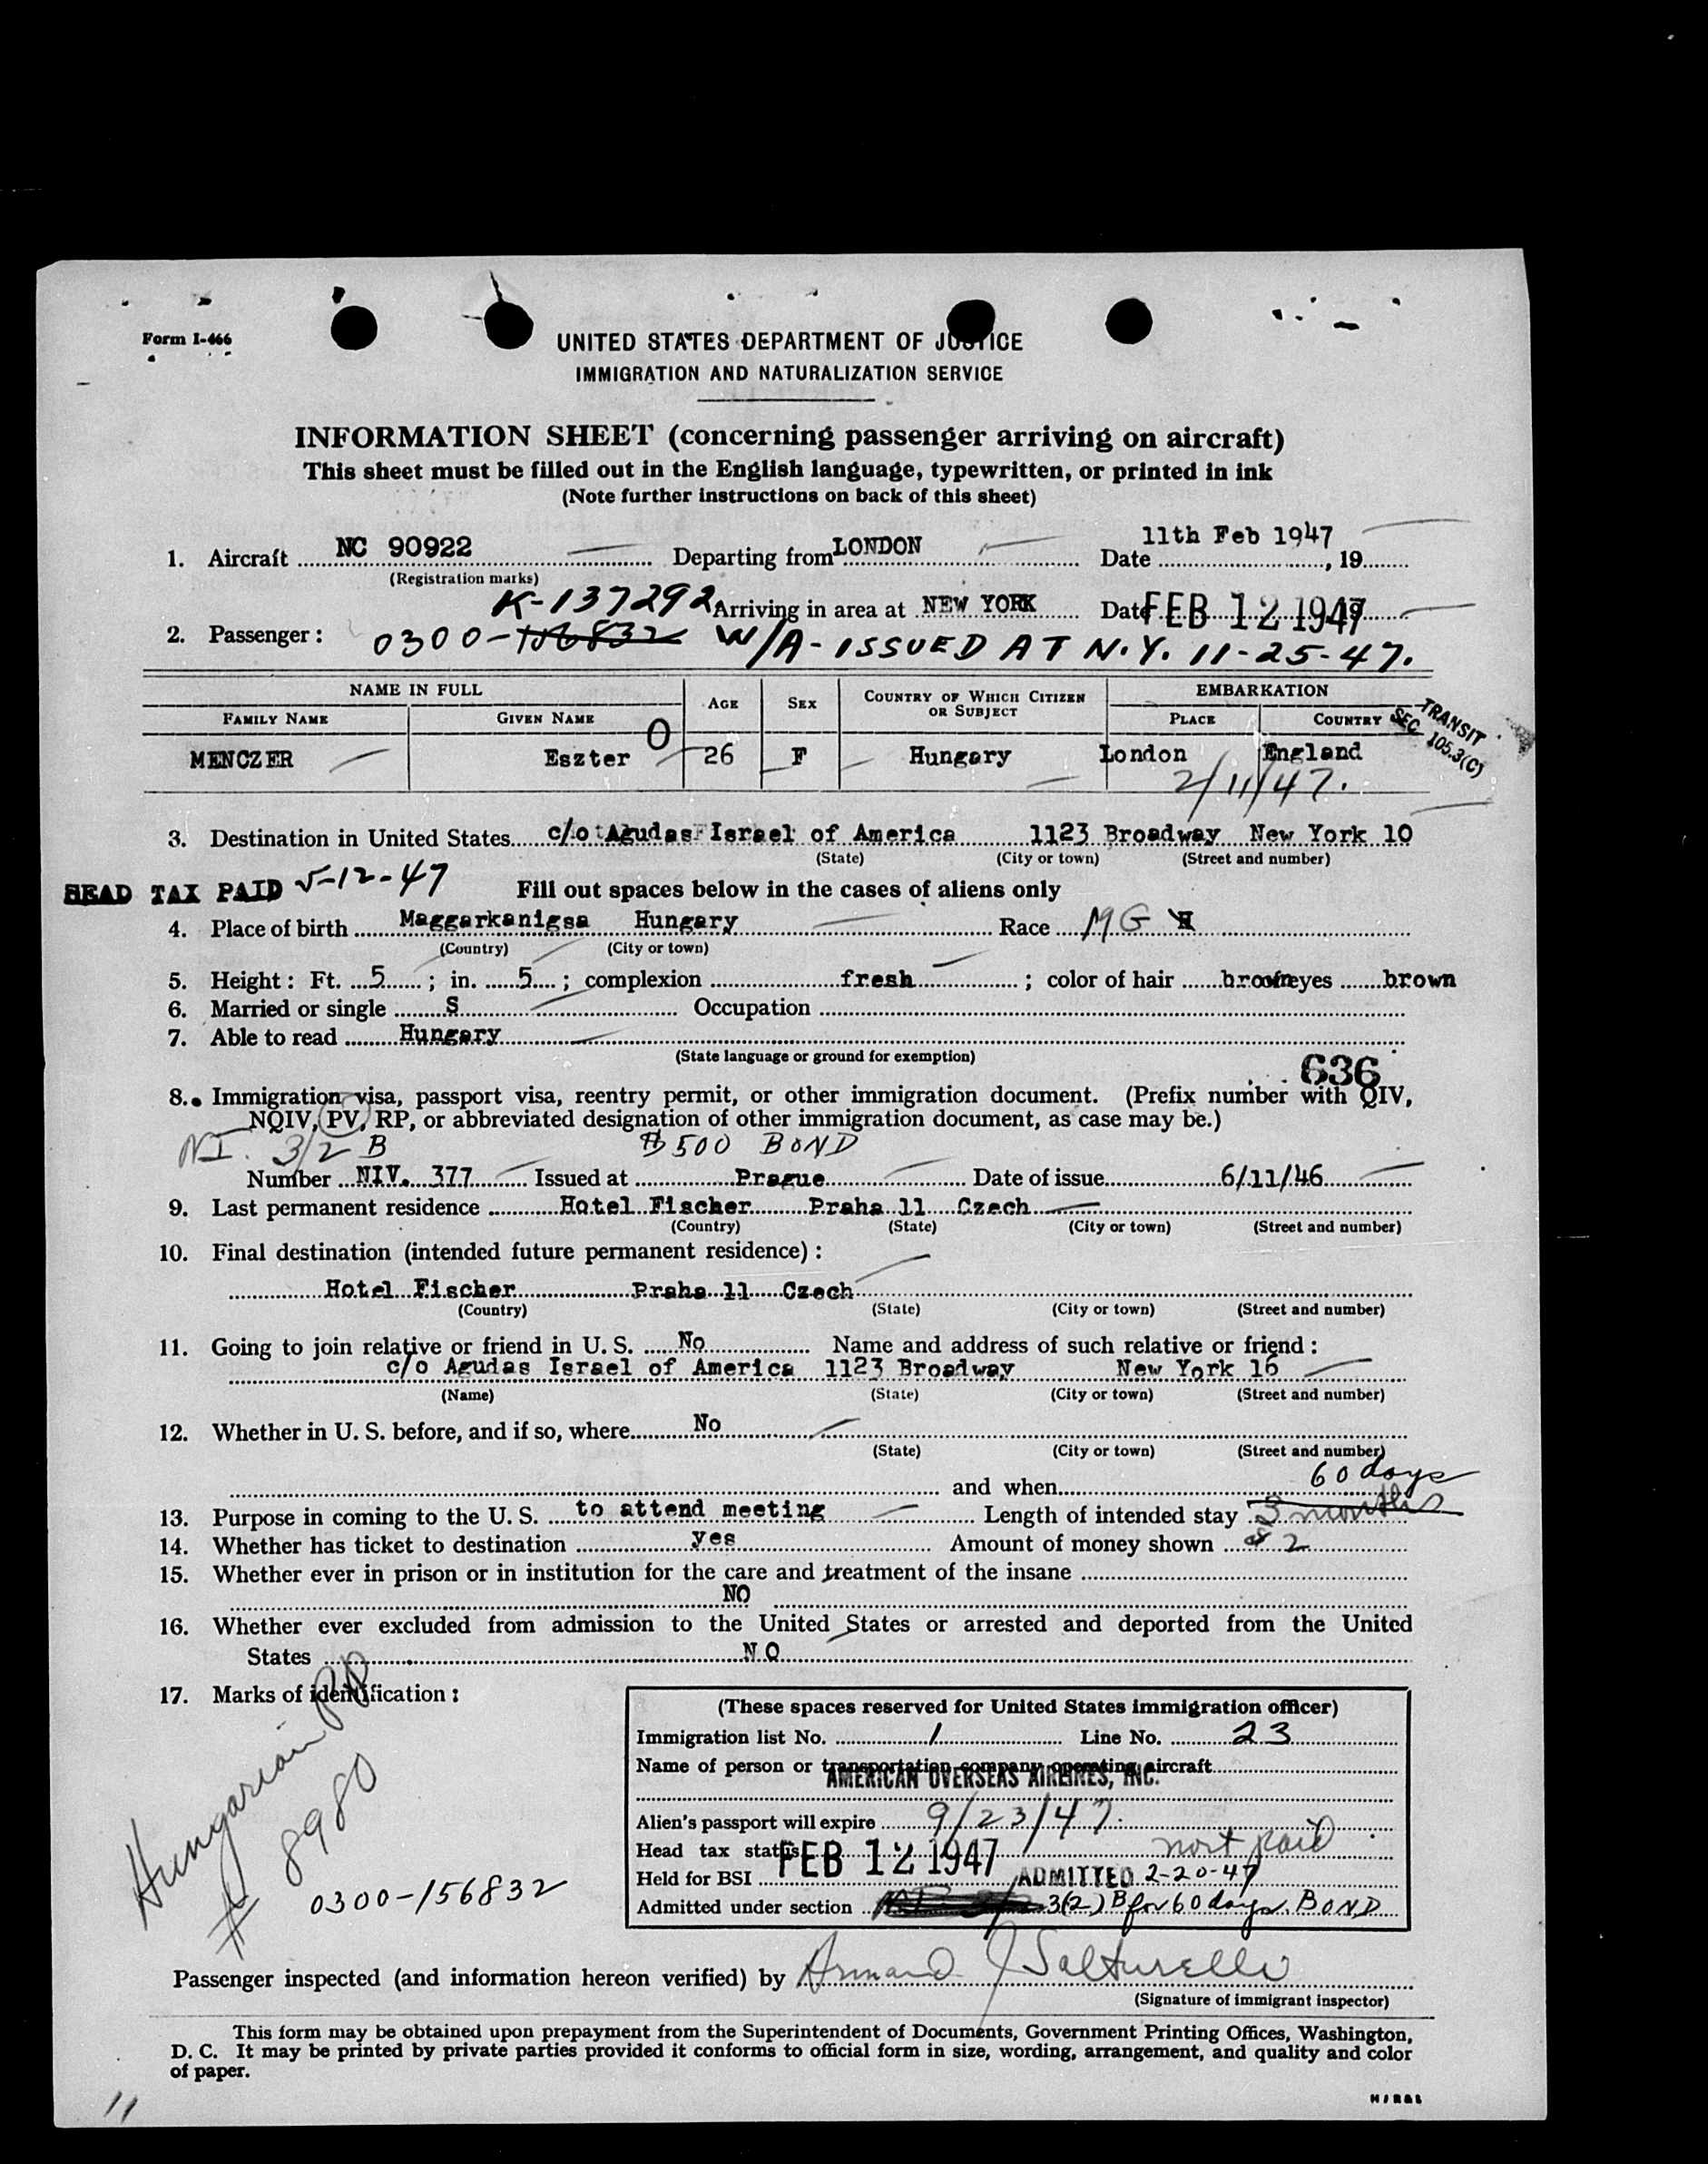 Form I-466
UNITED STATES DEPARTMENT OF JUSTICE
IMMIGRATION AND NATURALIZATION SERVICE
INFORMATION SHEET (concerning passenger arriving on aircraft)
This sheet must be filled out in the English language, typewritten, or printed in ink
(Note further instructions on back of this sheet)
1. Aircraft NC 90922 Departing from LONDON Date 11th Feb 1947, 19
(Registration marks)
K-137292 Arriving in area at NEW YORK Date FEB 12 1947
2. Passenger: 0300-156832 W/A-ISSUED AT N.Y. 11-25-47.
NAME IN FULL AGE SEX COUNTRY OF WHICH CITIZEN OR SUBJECT EMBARKATION
FAMILY NAME GIVEN NAME PLACE COUNTRY
TRANSIT
SEC 105.3(C)
MENCZER Eszter 0 26 F Hungary London England
2/11/47.
3. Destination in United States c/o Agudas Israel of America 1123 Broadway New York 10
(State) (City or town) (Street and number)
HEAD TAX PAID 5-12-47 Fill out spaces below in the cases of aliens only
4. Place of birth Maggarkanigsa Hungary Race MG H
(Country) (City or town)
5. Height: Ft. 5; in. 5; complexion fresh; color of hair brown eyes brown
6. Married or single S Occupation
7. Able to read Hungary
(State language or ground for exemption)
636
8. Immigration visa, passport visa, reentry permit, or other immigration document. (Prefix number with QIV,
NQIV, PV, RP, or abbreviated designation of other immigration document, as case may be.)
NI. 3/2 B $500 BOND
Number NIV. 377 Issued at Prague Date of issue 6/11/46
9. Last permanent residence Hotel Fischer Praha 11 Czech
(Country) (State) (City or town) (Street and number)
10. Final destination (intended future permanent residence):
Hotel Fischer Praha 11 Czech
(Country) (State) (City or town) (Street and number)
11. Going to join relative or friend in U. S. No Name and address of such relative or friend:
c/o Agudas Israel of America 1123 Broadway New York 16
(Name) (State) (City or town) (Street and number)
12. Whether in U. S. before, and if so, where No
(State) (City or town) (Street and number)
and when
60 days
13. Purpose in coming to the U. S. to attend meeting Length of intended stay 3 months
14. Whether has ticket to destination yes Amount of money shown $2
15. Whether ever in prison or in institution for the care and treatment of the insane
NO
16. Whether ever excluded from admission to the United States or arrested and deported from the United
States NO
17. Marks of identification:
Hungarian PP
# 8980
0300-156832
(These spaces reserved for United States immigration officer)
Immigration list No. 1 Line No. 23
Name of person or transportation company operating aircraft
AMERICAN OVERSEAS AIRLINES, INC.
Alien's passport will expire 9/23/47.
Head tax status not paid
Held for BSI FEB 12 1947 ADMITTED 2-20-47
Admitted under section 3(2) B for 60 days. BOND
Passenger inspected (and information hereon verified) by Armand J Salturelli
(Signature of immigrant inspector)
This form may be obtained upon prepayment from the Superintendent of Documents, Government Printing Offices, Washington,
D. C. It may be printed by private parties provided it conforms to official form in size, wording, arrangement, and quality and color
of paper.
11